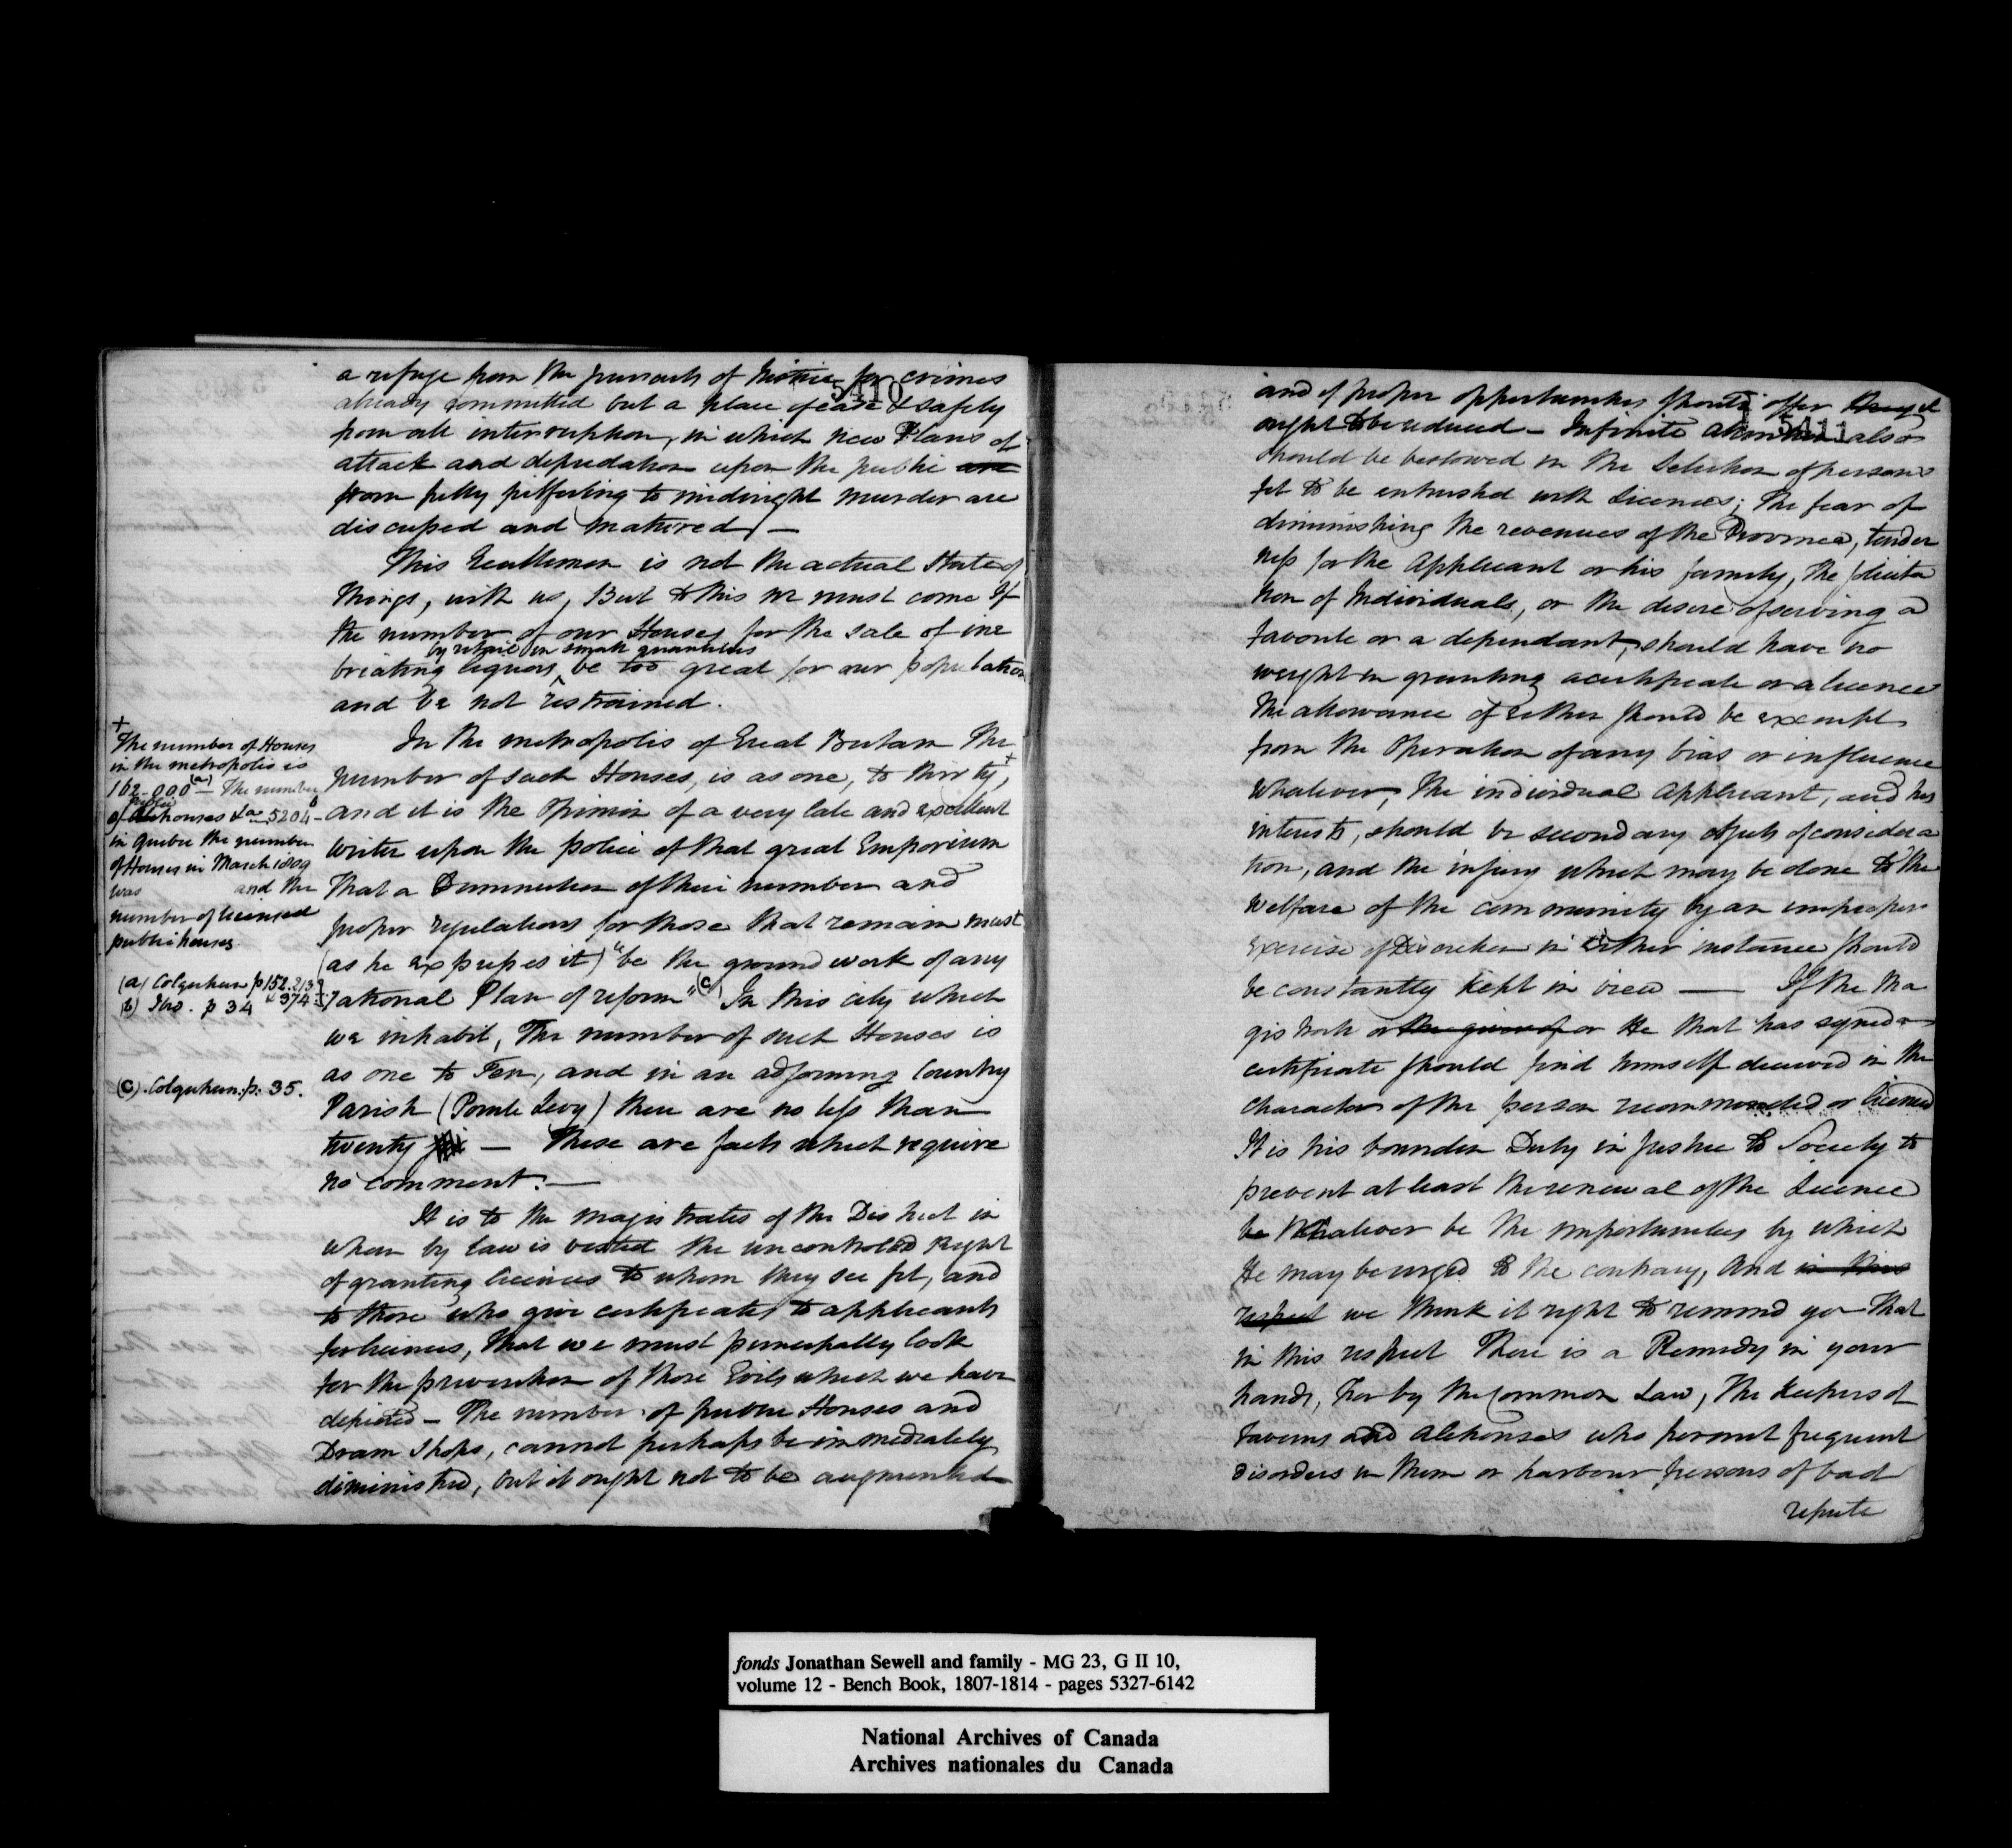 5410
a refuge from the pursuits of Justice for crimes
already committed but a place of ease & safety
from all interruption, in which new Plans of
attack and depredation upon the public are
from petty pilfering to midnight murder are
discussed and matured —
This Gentlemen is not the actual State of
Things, with us, But to this we must come If
the number of our Houses for the sale of ine
by retail in small quantities
briating liquors be too great for our population
and be not restrained.
In the metropolis of Great Britain the
number of such Houses, is as one, to thirty +,
and it is the Opinion of a very late and excellent
writer upon the police of that great Emporium
That a Diminution of their number and
proper regulations for those that remain must
(as he expresses it) "be the ground work of any
rational Plan of reform" (c) In this city which
we inhabit, The number of such Houses is
as one to Ten, and in an adjoining Country
Parish (Pointe Levy) there are no less than
twenty — These are facts which require
no comment. —
It is to the Magistrates of the District in
whom by law is vested the uncontroled Right
of granting licences to whom they see fit, and
to those who give certificates to applicants
for licences, That we must principally look
for the prevention of those Evils which we have
depicted — The number of public Houses and
Dram Shops, cannot perhaps be immediately
diminished, but it ought not to be augmented
+
The number of Houses
in the metropolis is
162.000 (a) — The number
public
of Alehouses &ca 5204 b
in Quebec the number
of Houses in March 1809
was and the
number of licensed
public houses.
(a) Colquhoun p 152. 213
& 374
(b) Ibid. p 34
(c). Colquhoun. p. 35.
5411
and if proper opportunities should offer they it
ought to be reduced — Infinite attention also
should be bestowed in the Selection of persons
fit to be entrusted with Licences; The fear of
diminishing the revenues of the Province, tender
ness for the Applicant or his family, The solicita
tion of Individuals, or the desire of serving a
favorite or a dependant, should have no
weight in granting a certificate or a licence
The allowance of Either should be exempt
from the Operation of any bias or influence
Whatever, The individual Applicant, and his
interests, should be secondary objects of considera
tion, and the injury which may be done to the
Welfare of the community by an improper
exercise of Discretion in either instance should
be constantly kept in view — If the Ma
gistrate or the giver of or He that has signed a
certificate should find himself deceived in the
character of the person recommended or licensed
It is his bounden Duty in justice to Society to
prevent at least the renewal of the Licence
be Whatever be the importunities by which
He may be urged to the contrary, And in this
respect we think it right to remind you That
in this respect There is a Remedy in your
hands, For by the Common Law, The Keepers of
Taverns and Alehouses who permit frequent
disorders in them or harbour persons of bad
repute
fonds Jonathan Sewell and family - MG 23, G II 10,
volume 12 - Bench Book, 1807-1814 - pages 5327-6142
National Archives of Canada
Archives nationales du Canada